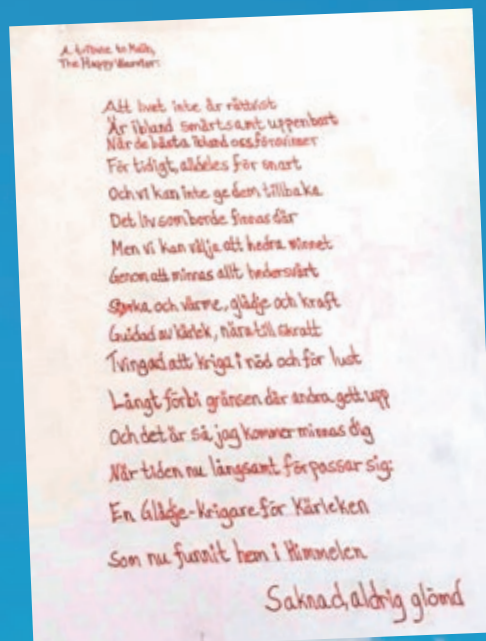 A tribute to Malik,
The Happy Warrior:
Att livet inte är rättvist
Är ibland smärtsamt uppenbart
När de bästa ibland oss försvinner
För tidigt, alldeles för snart
Och vi kan inte ge dem tillbaka
Det liv som borde finnas där
Men vi kan välja att hedra minnet
Genom att minnas allt hedersvärt
Styrka och värme, glädje och kraft
Guidad av kärlek, nära till skratt
Tvingad att kriga i nöd och för lust
Långt förbi gränsen där andra gett upp
Och det är så jag kommer minnas dig
När tiden nu långsamt förpassar sig:
En Glädje-krigare för Kärleken
Som nu funnit hem i Himmelen
Saknad, aldrig glömd